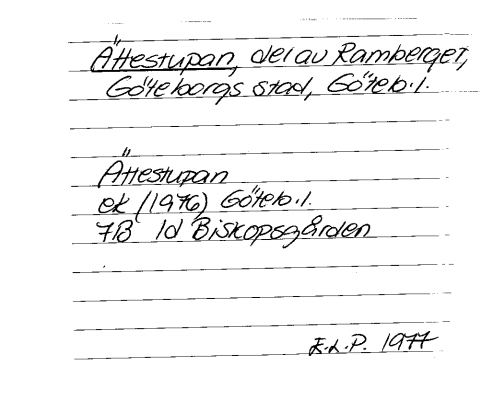 Ättestupan, del av Ramberget,
Göteborgs stad, Göteb.l.
Ättestupan
ek (1976) Göteb.l.
7B 1d Biskopsgården
E.L.P. 1977